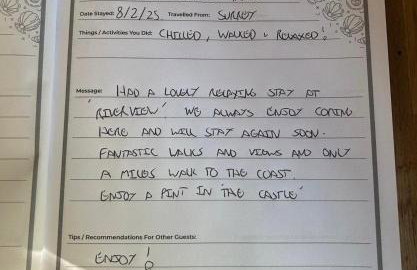 Date Stayed: 8/2/25 Travelled From: SURREY
Things / Activities You Did: CHILLED, WALKED & RELAXED!
Message: HAD A LOVELY RELAXING STAY AT
'RIVERVIEW'. WE ALWAYS ENJOY COMING
HERE AND WILL STAY AGAIN SOON.
FANTASTIC WALKS AND VIEWS AND ONLY
A MILES WALK TO THE COAST.
ENJOY A PINT IN 'THE CASTLE'
Tips / Recommendations For Other Guests:
ENJOY!